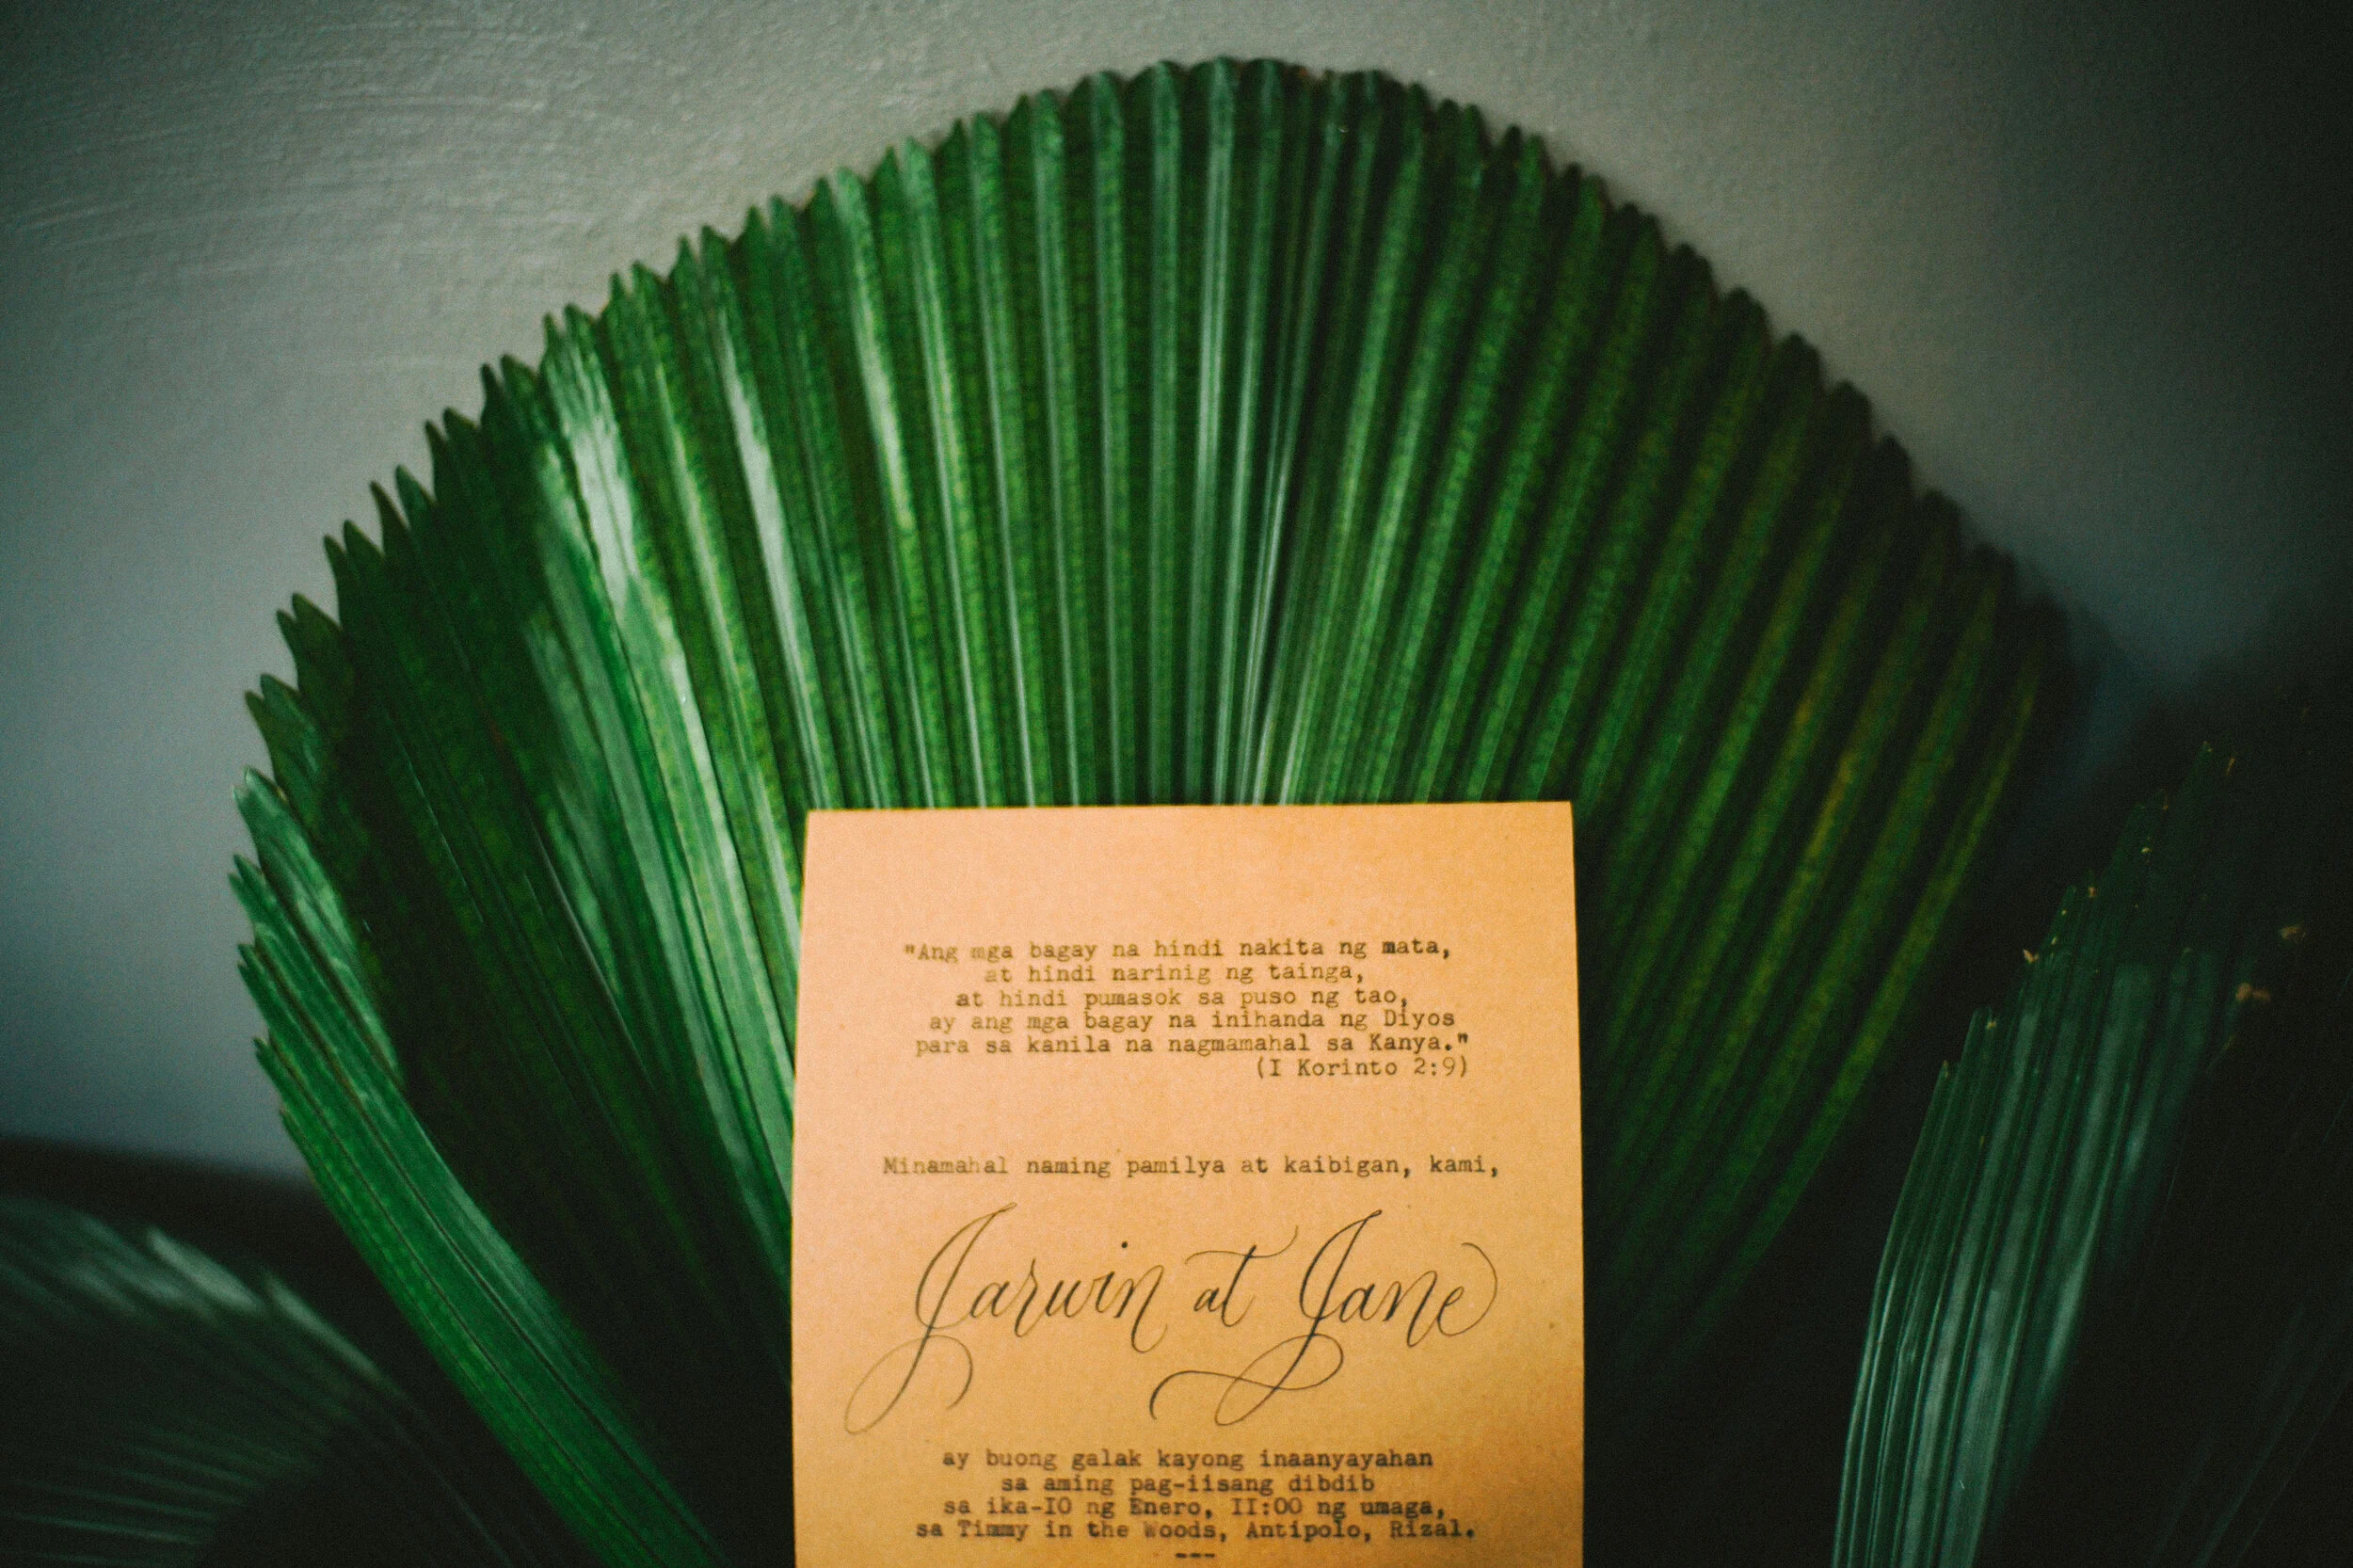 "Ang mga bagay na hindi nakita ng mata,
at hindi narinig ng tainga,
at hindi pumasok sa puso ng tao,
ay ang mga bagay na inihanda ng Diyos
para sa kanila na nagmamahal sa Kanya."
(I Korinto 2:9)
Minamahal naming pamilya at kaibigan, kami,
Jarwin at Jane
ay buong galak kayong inaanyayahan
sa aming pag-iisang dibdib
sa ika-IO ng Enero, II:OO ng umaga,
sa Timmy in the Woods, Antipolo, Rizal.
---